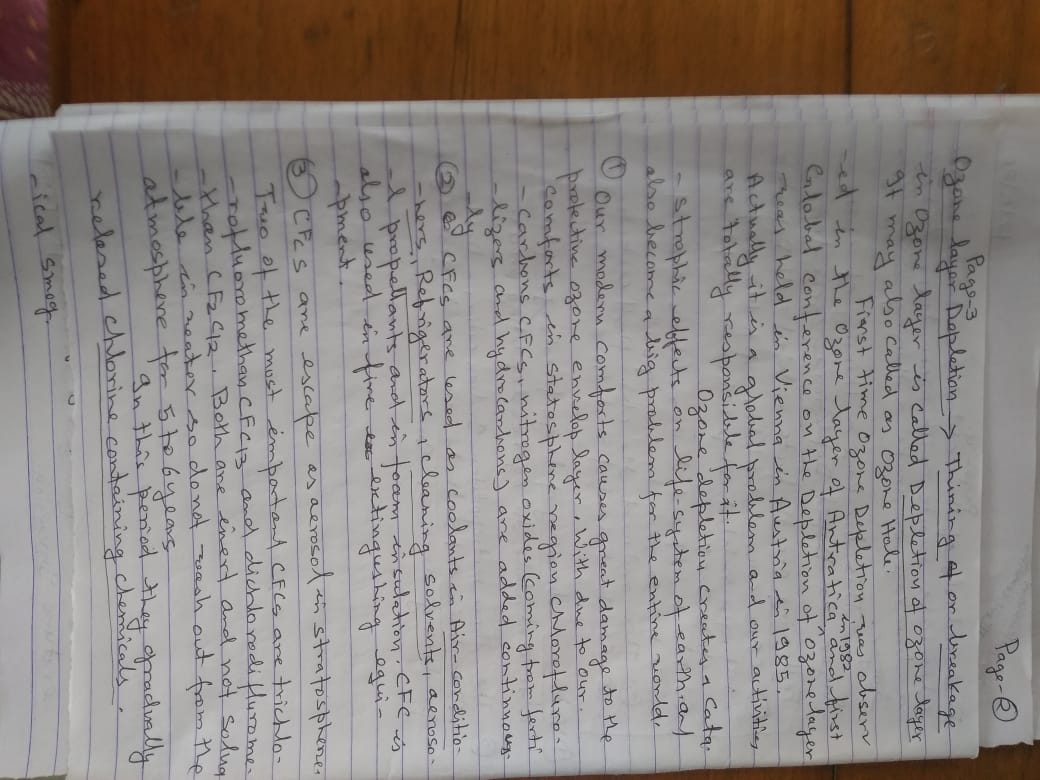 Page-②
Page 3
Ozone layer Depletion → Thining of or breakage
in Ozone layer is called Depletion of ozone layer
It may also called as Ozone Hole.
First time Ozone Depletion was observ
-ed in the Ozone layer of Antratica in 1982 and first
Global conference on the Depletion of Ozone layer
was held in Vienna in Austria in 1985.
Actually it is a global problem and our activities
are totally responsible for it.
Ozone depletion creates a Cata-
-strophic effects on life system of earth and
also become a big problem for the entire world
① Our modern comforts causes great damage to the
protective ozone envelop layer, With due to our
comforts in statosphere region chlorofluro-
-carbons CFCs, nitrogen oxides (coming from ferti
-lizers and hydrocarbons) are added continuous
-ly
② CFCs are used as coolants in Air-conditio-
-ners, Refrigerators, cleaning solvents, aeroso-
-l propellants and in foam insulation. CFC is
also used in fire extingushing equi-
-pment.
③ CFCs are escape as aerosol in stratosphere.
Two of the most important CFCs are trichlo-
-rofluoromethan CFCl3 and dichlorodiflurome-
-than CF2Cl2. Both are inert and not solu
-ble in water so do not wash out from the
atmosphere for 5 to 6 years
In this period they gradually
relesed Chlorine containing chemicals.
-ical smog.